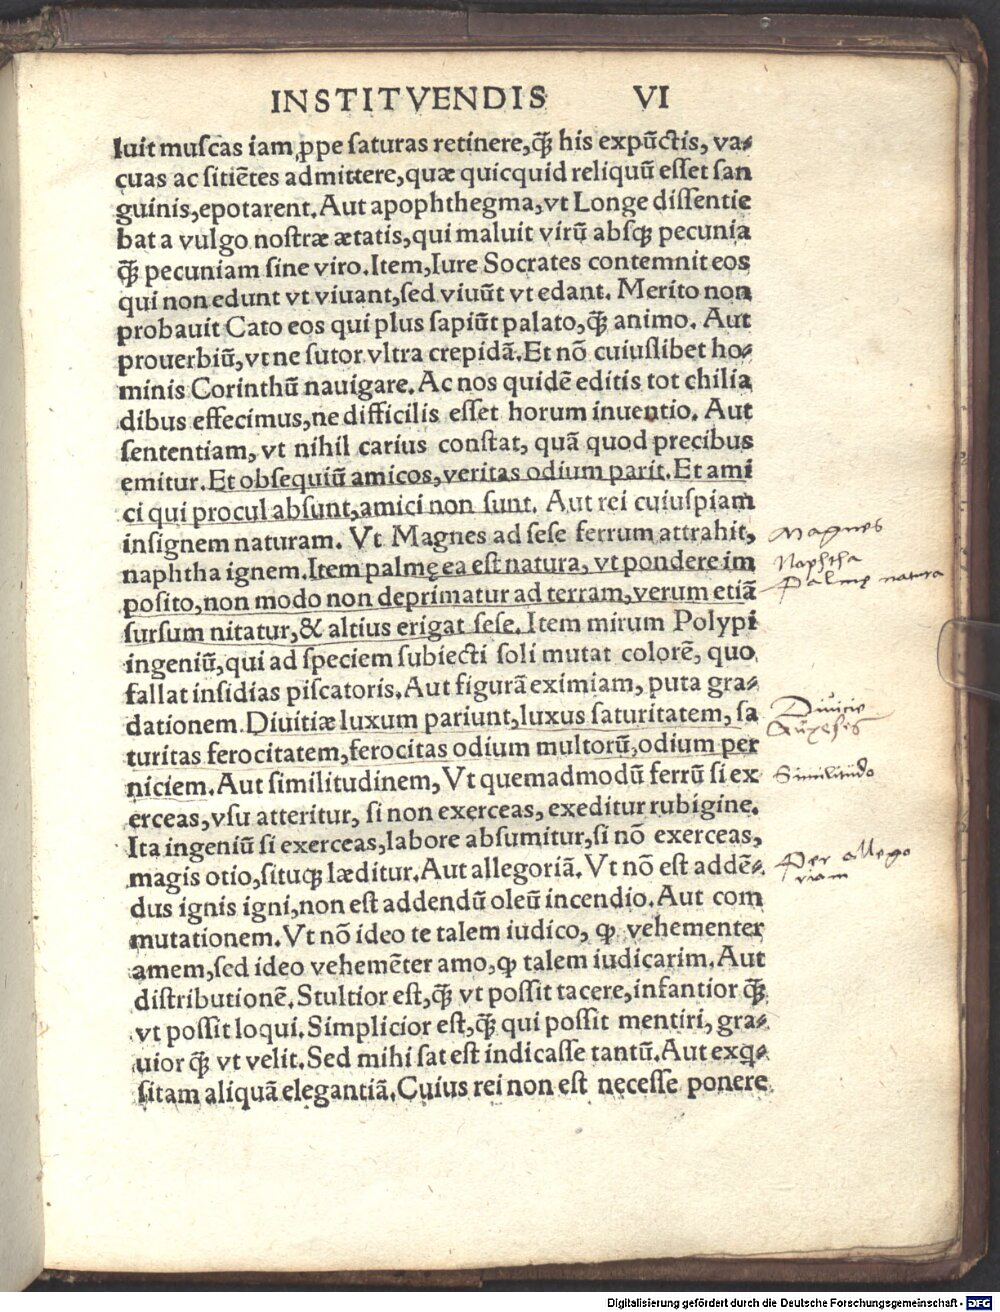 INSTITVENDIS VI
luit muſcas iam ꝓpe ſaturas retinere, ꝙ̃ his expũctis, va⸗
cuas ac ſitiẽtes admittere, quæ quicquid reliquũ eſſet ſan
guinis, epotarent. Aut apophthegma, vt Longe diſſentie
bat a vulgo noſtræ ætatis, qui maluit virũ abſqꝫ pecunia
ꝙ̃ pecuniam ſine viro. Item, Iure Socrates contemnit eos
qui non edunt vt viuant, ſed viuũt vt edant. Merito non
probauit Cato eos qui plus ſapiũt palato, ꝙ̃ animo. Aut
prouerbiũ, vt ne ſutor vltra crepidã. Et nõ cuiuſlibet ho⸗
minis Corinthũ nauigare. Ac nos quidẽ editis tot chilia
dibus effecimus, ne difficilis eſſet horum inuentio. Aut
ſententiam, vt nihil carius conſtat, quã quod precibus
emitur. Et obſequiũ amicos, veritas odium parit. Et ami
ci qui procul abſunt, amici non ſunt. Aut rei cuiuſpiam
inſignem naturam. Vt Magnes ad ſeſe ferrum attrahit,
naphtha ignem. Item palmę ea eſt natura, vt pondere im
poſito, non modo non deprimatur ad terram, verum etiã
ſurſum nitatur, & altius erigat ſeſe. Item mirum Polypi
ingeniũ, qui ad ſpeciem ſubiecti ſoli mutat colorẽ, quo
fallat inſidias piſcatoris. Aut figurã eximiam, puta gra⸗
dationem. Diuitiæ luxum pariunt, luxus ſaturitatem, ſa
turitas ferocitatem, ferocitas odium multorũ, odium per
niciem. Aut ſimilitudinem, Vt quemadmodũ ferrũ ſi ex
erceas, vſu atteritur, ſi non exerceas, exeditur rubigine.
Ita ingeniũ ſi exerceas, labore abſumitur, ſi nõ exerceas,
magis otio, ſituqꝫ læditur. Aut allegoriã. Vt nõ eſt addẽ⸗
dus ignis igni, non eſt addendũ oleũ incendio. Aut com
mutationem. Vt nõ ideo te talem iudico, ꝙ vehementer
amem, ſed ideo vehemẽter amo, ꝙ talem iudicarim. Aut
diſtributionẽ. Stultior eſt, ꝙ̃ vt poſſit tacere, infantior ꝙ̃
vt poſſit loqui. Simplicior eſt, ꝙ̃ qui poſſit mentiri, gra⸗
uior ꝙ̃ vt velit. Sed mihi ſat eſt indicaſſe tantũ. Aut exq̇⸗
ſitam aliquã elegantiã. Cuius rei non eſt neceſſe ponere
Magnes
Naphtha
Palmę natura
Diuitie
Similitudo
Per allego
riam
Digitalisierung gefördert durch die Deutsche Forschungsgemeinschaft - DFG